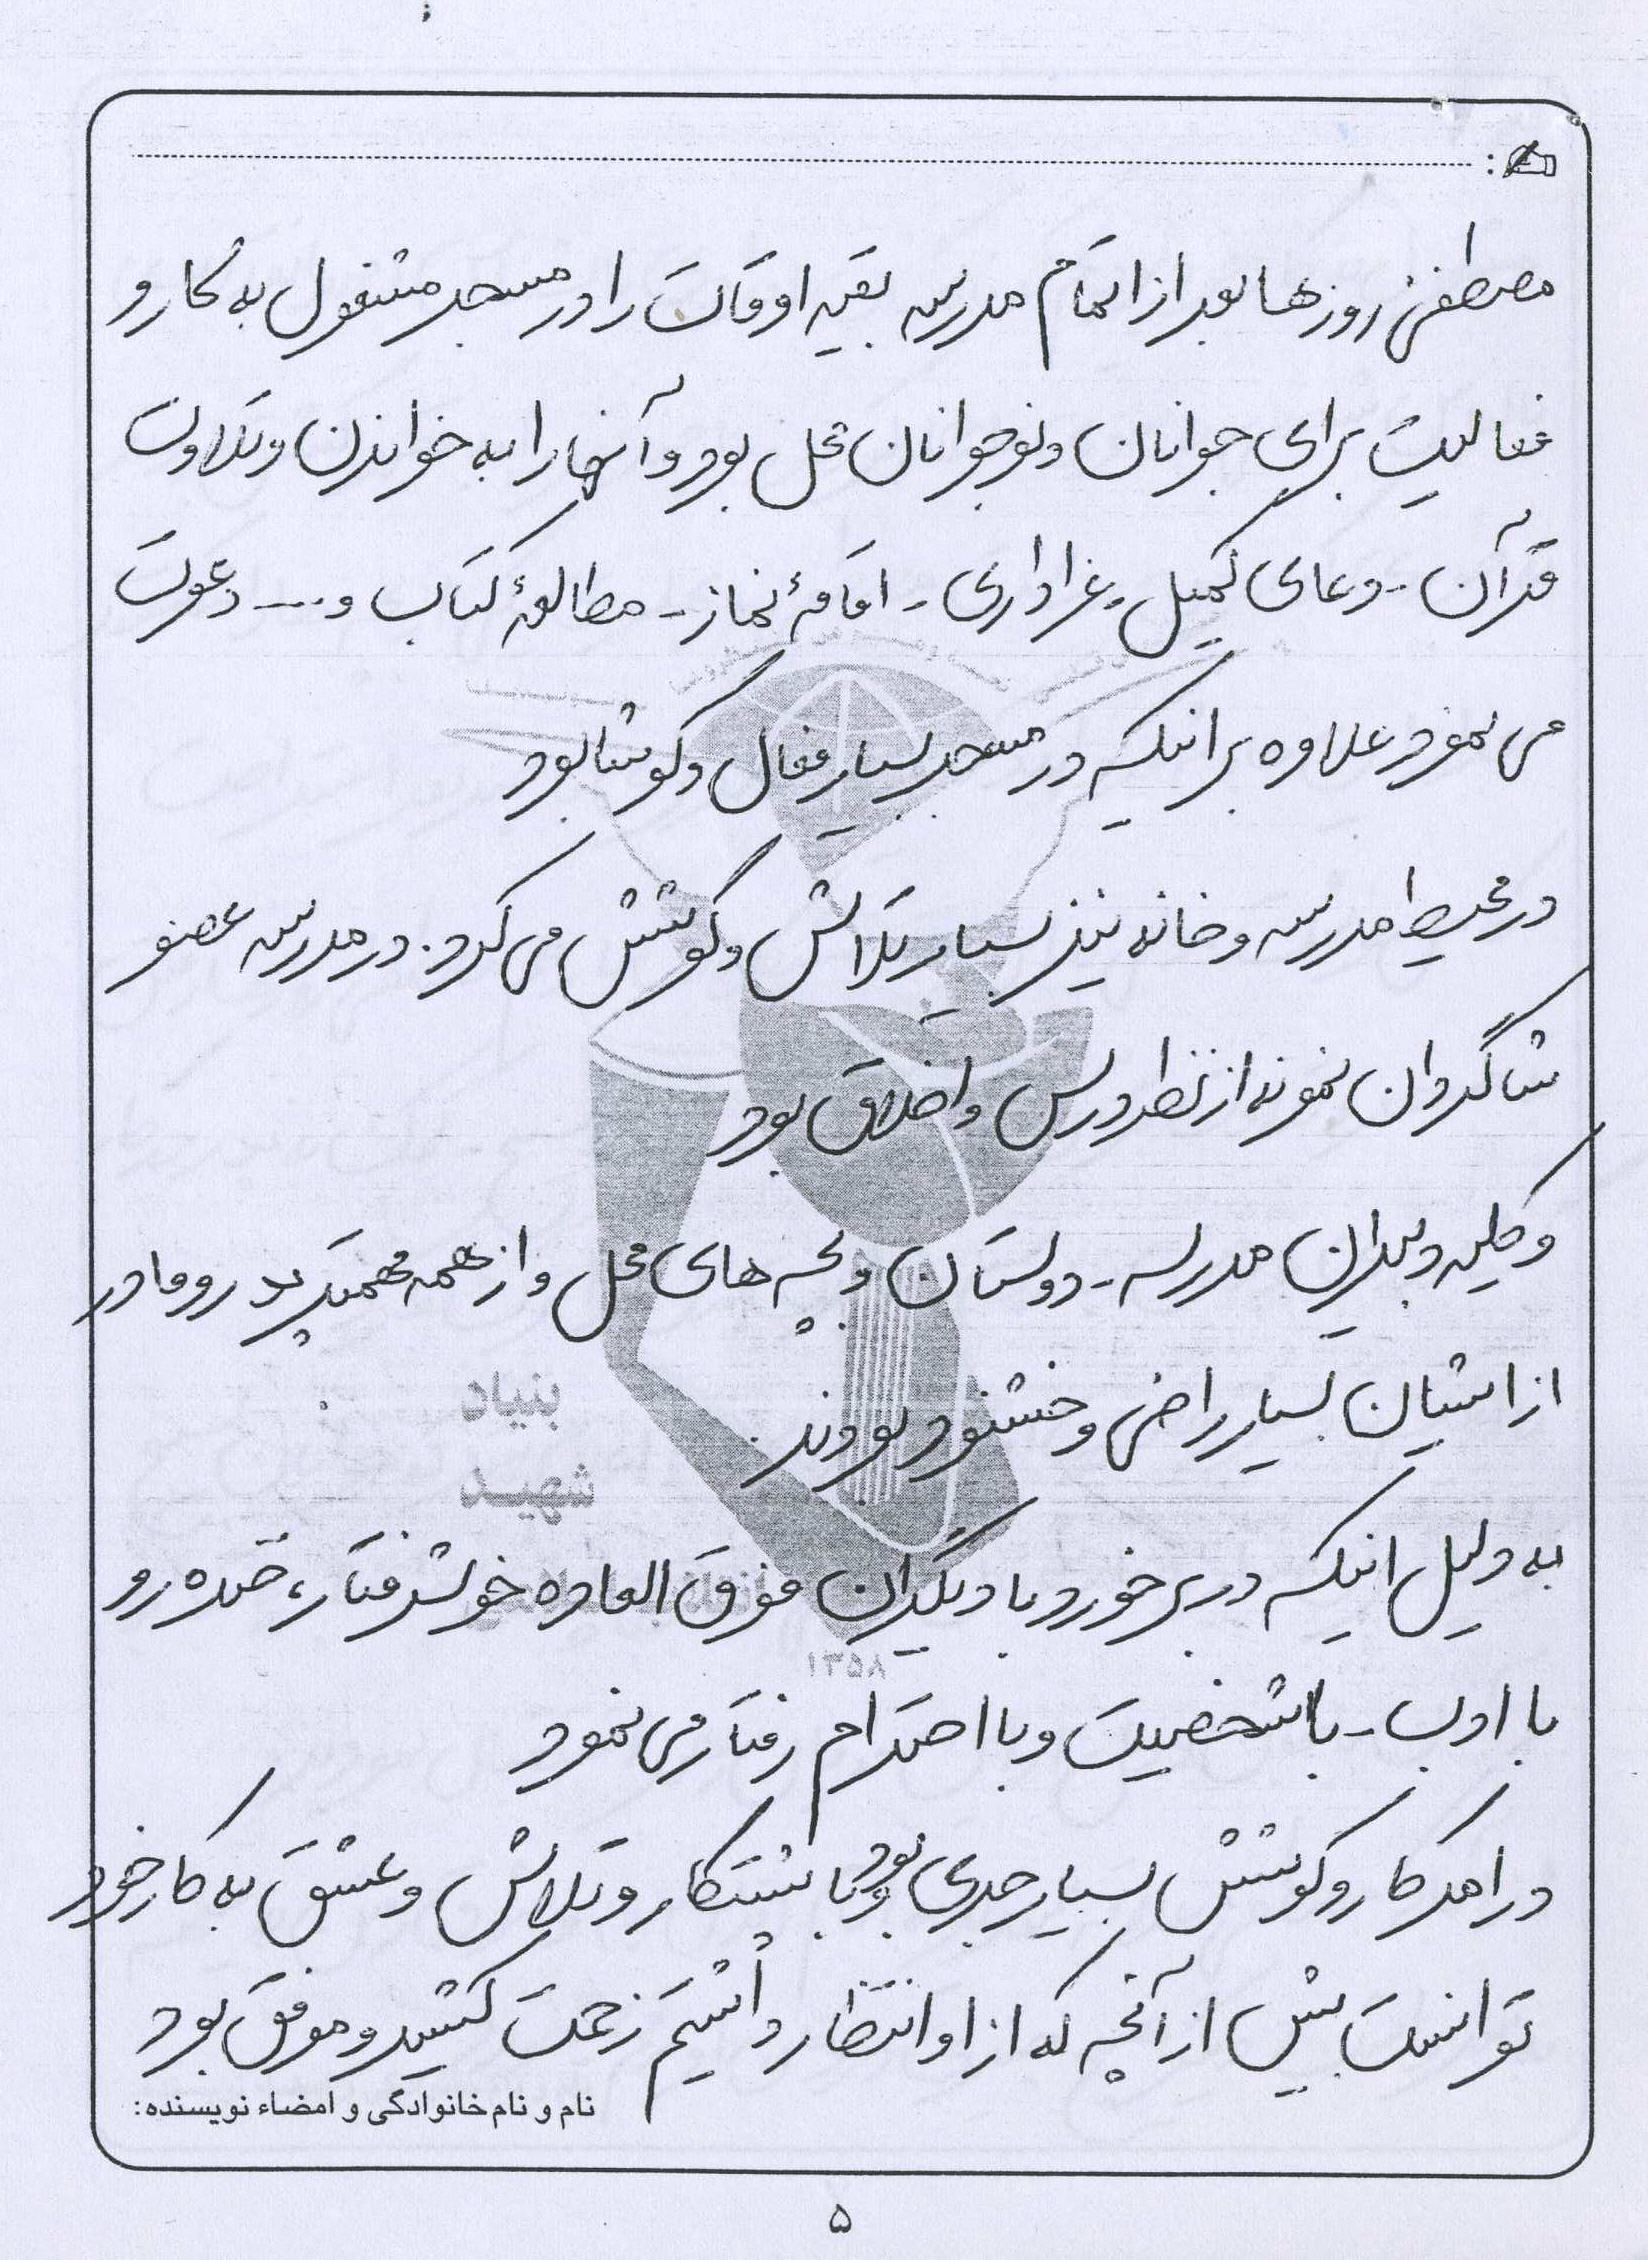 مصطفی روزها بعد از اتمام مدرسه بقیه اوقات را در مسجد مشغول به کار و
فعالیت برای جوانان و نوجوانان محل بود و آنها را به خواندن و تلاوت
قرآن - دعای کمیل - عزاداری - اقامهٔ نماز - مطالعهٔ کتاب و .... دعوت
می نمود علاوه بر اینکه در مسجد بسیار فعال و کوشا بود
در محیط مدرسه و خانه نیز بسیار تلاش و کوشش می کرد. در مدرسه عضو
شاگردان نمونه از نظر درس و اخلاق بود
و کلیه دبیران مدرسه - دوستان و بچه های محل و از همه مهمتر پدر و مادر
از ایشان بسیار راضی و خشنود بودند.
بنیاد
شهید
به دلیل اینکه در برخورد با دیگران فوق العاده خوشرفتار، خنده رو
۱۳۵۸
با ادب - با شخصیت و با احترام رفتار می نمود
در امر کار و کوشش بسیار جدی بود و با پشتکار و تلاش و عشق به کار خود
توانست بیش از آنچه که از او انتظار داشتیم زحمت کشید و موفق بود
نام و نام خانوادگی و امضاء نویسنده:
۵